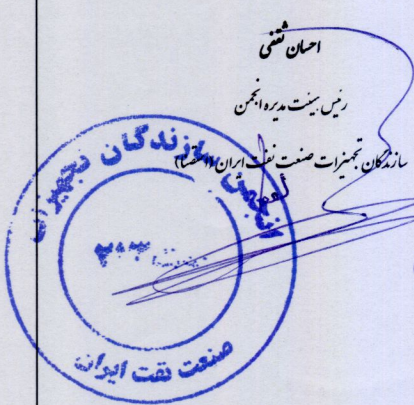 احسان ثقفی
رئیس هیئت مدیره انجمن
سازندگان تجهیزات صنعت نفت ایران (استصنا)
انجمن سازندگان تجهیزات
صنعت نفت ایران